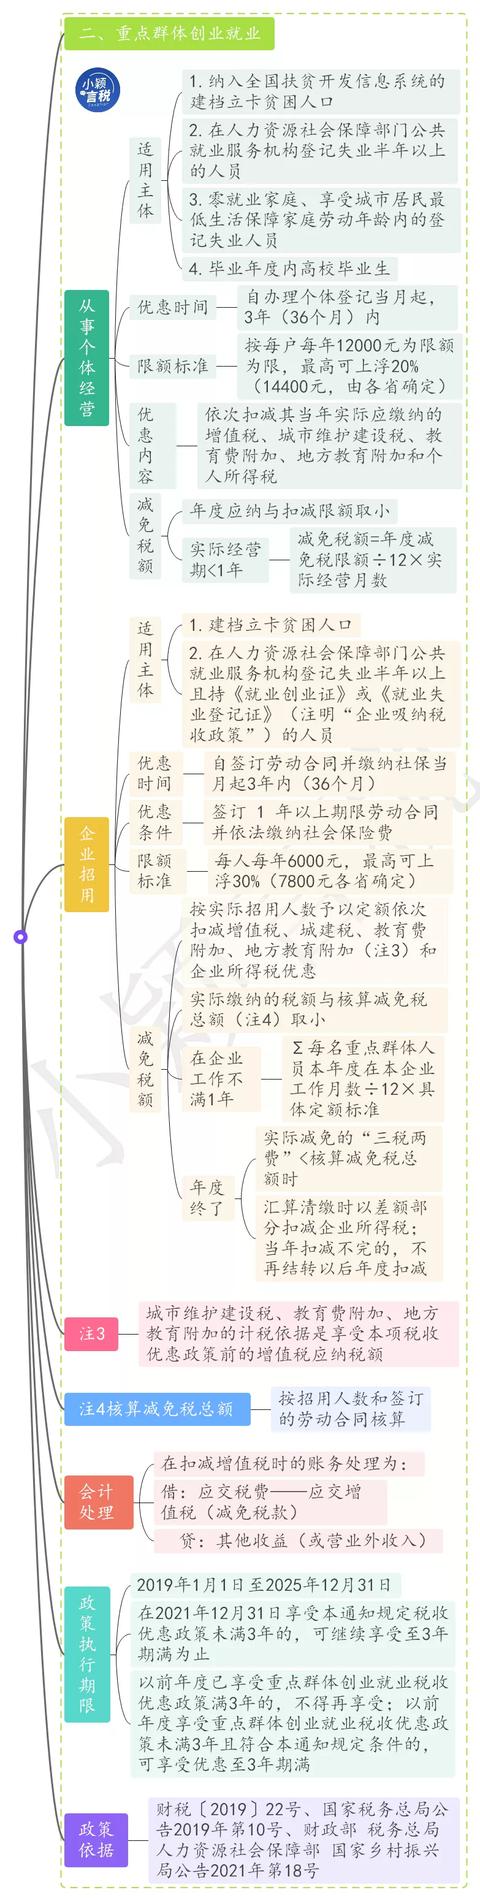 二、重点群体创业就业
小颖
言税
适
用
主
体
1.纳入全国扶贫开发信息系统的
建档立卡贫困人口
2.在人力资源社会保障部门公共
就业服务机构登记失业半年以上
的人员
3.零就业家庭、享受城市居民最
低生活保障家庭劳动年龄内的登
记失业人员
4.毕业年度内高校毕业生
从
事
个
体
经
营
优惠时间
自办理个体登记当月起，
3年（36个月）内
限额标准
按每户每年12000元为限额
为限，最高可上浮20%
（14400元，由各省确定）
优
惠
内
容
依次扣减其当年实际应缴纳的
增值税、城市维护建设税、教
育费附加、地方教育附加和个
人所得税
减
免
税
额
年度应纳与扣减限额取小
实际经营
期<1年
减免税额=年度减
免税限额÷12×实
际经营月数
适
用
主
体
1.建档立卡贫困人口
2.在人力资源社会保障部门公共
就业服务机构登记失业半年以上
且持《就业创业证》或《就业失
业登记证》（注明“企业吸纳税
收政策”）的人员
优惠
时间
自签订劳动合同并缴纳社保当
月起3年内（36个月）
优惠
条件
签订 1 年以上期限劳动合同
并依法缴纳社会保险费
企
业
招
用
限额
标准
每人每年6000元，最高可上
浮30%（7800元各省确定）
减
免
税
额
按实际招用人数予以定额依次
扣减增值税、城建税、教育费
附加、地方教育附加（注3）和
企业所得税优惠
实际缴纳的税额与核算减免税
总额（注4）取小
在企业
工作不
满1年
Σ每名重点群体人
员本年度在本企业
工作月数÷12×具
体定额标准
年度
终了
实际减免的“三税两
费”<核算减免税总
额时
汇算清缴时以差额部
分扣减企业所得税；
当年扣减不完的，不
再结转以后年度扣减
注3
城市维护建设税、教育费附加、地方
教育附加的计税依据是享受本项税收
优惠政策前的增值税应纳税额
注4核算减免税总额
按招用人数和签订
的劳动合同核算
会计
处理
在扣减增值税时的账务处理为：
借：应交税费——应交增
值税（减免税款）
贷：其他收益（或营业外收入）
政
策
执
行
期
限
2019年1月1日至2025年12月31日
在2021年12月31日享受本通知规定税收
优惠政策未满3年的，可继续享受至3年
期满为止
以前年度已享受重点群体创业就业税收
优惠政策满3年的，不得再享受；以前
年度享受重点群体创业就业税收优惠政
策未满3年且符合本通知规定条件的，
可享受优惠至3年期满
政策
依据
财税〔2019〕22号、国家税务总局公
告2019年第10号、财政部 税务总局
人力资源社会保障部 国家乡村振兴
局公告2021年第18号